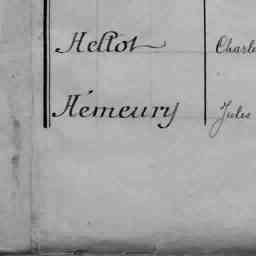 Hellot Charle
Hémeury Jules